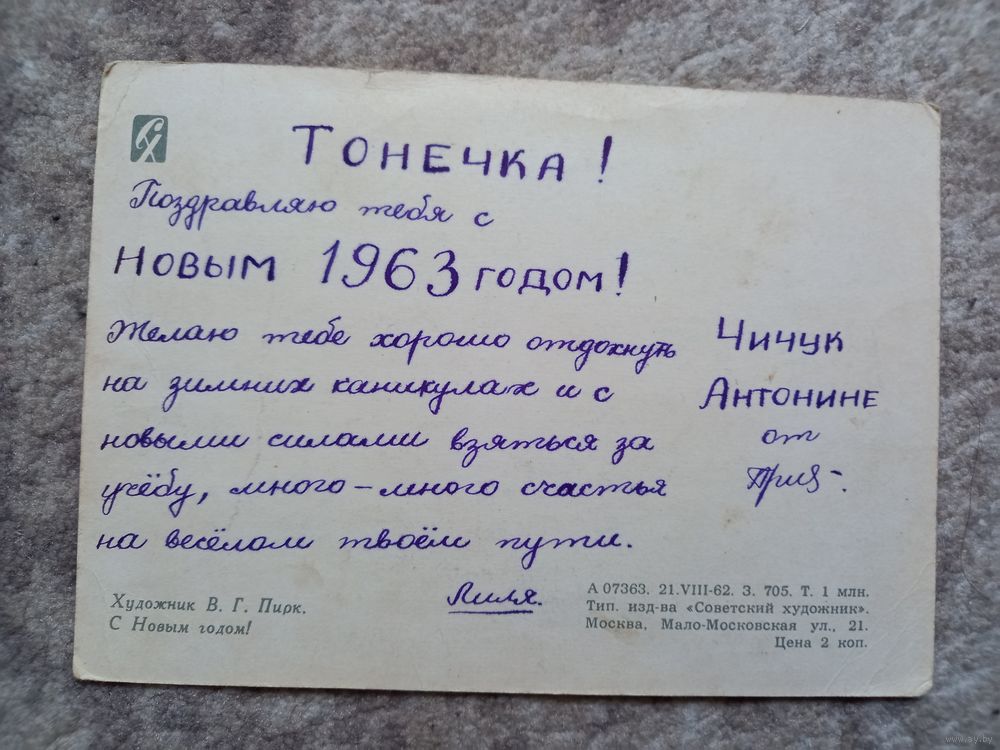 ТОНЕЧКА!
Поздравляю тебя с
НОВЫМ 1963 ГОДОМ!
Желаю тебе хорошо отдохнуть
на зимних каникулах и с
новыми силами взяться за
учёбу, много-много счастья
на весёлом твоём пути.
Лиля.
Чичук
Антонине
от
Художник В. Г. Пирк.
С Новым годом!
А 07363. 21.VIII-62. З. 705. Т. 1 млн.
Тип. изд-ва «Советский художник».
Москва, Мало-Московская ул., 21.
Цена 2 коп.
www.ay.by